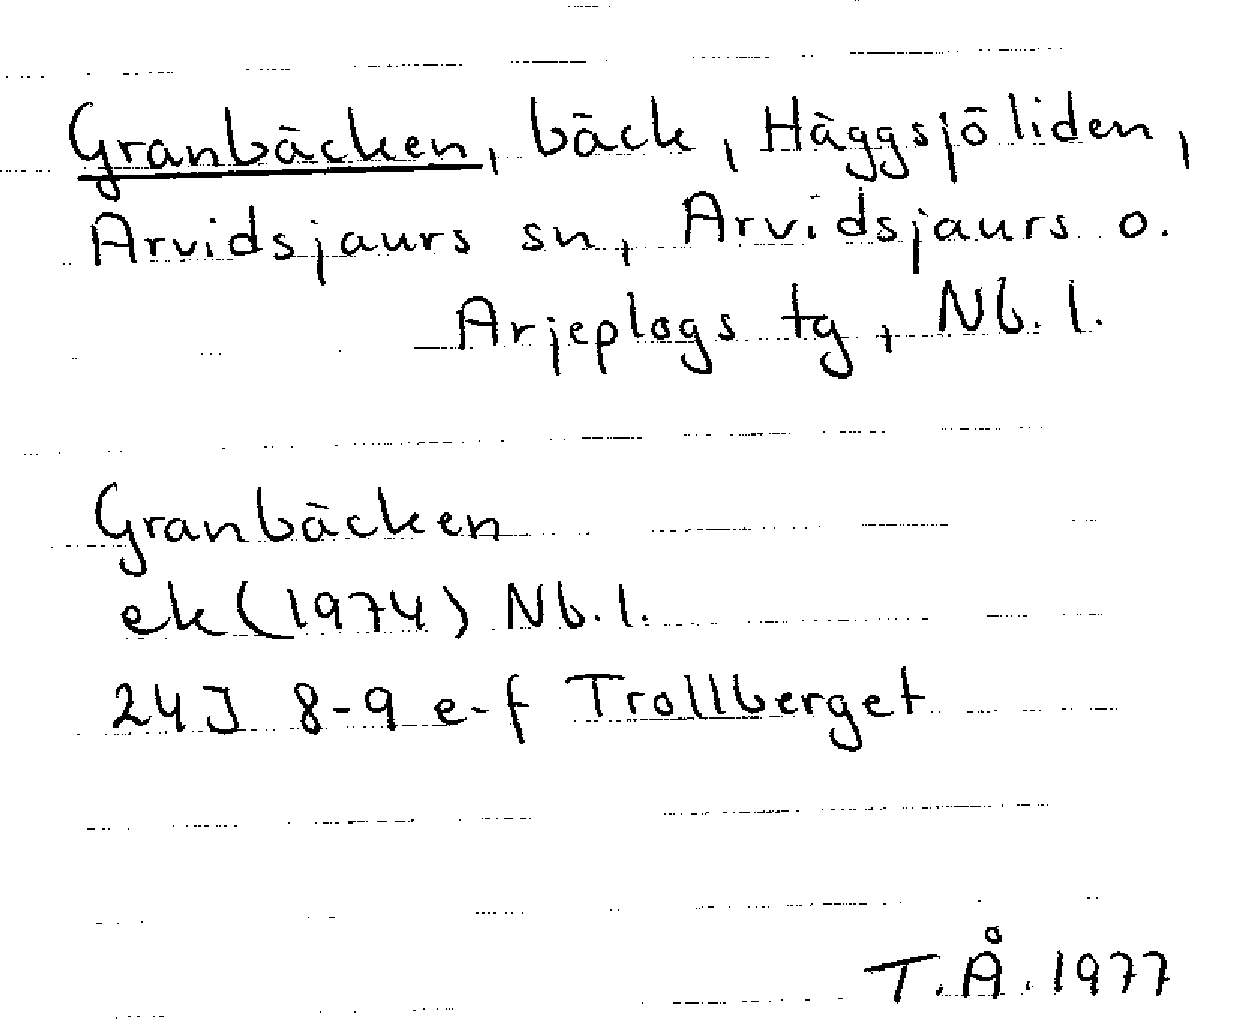 Granbäcken, bäck, Häggsjöliden,
Arvidsjaurs sn, Arvidsjaurs o.
Arjeplogs tg, Nb. l.
Granbäcken
ek (1974) Nb. l.
24J 8-9 e-f Trollberget
T.Å. 1977